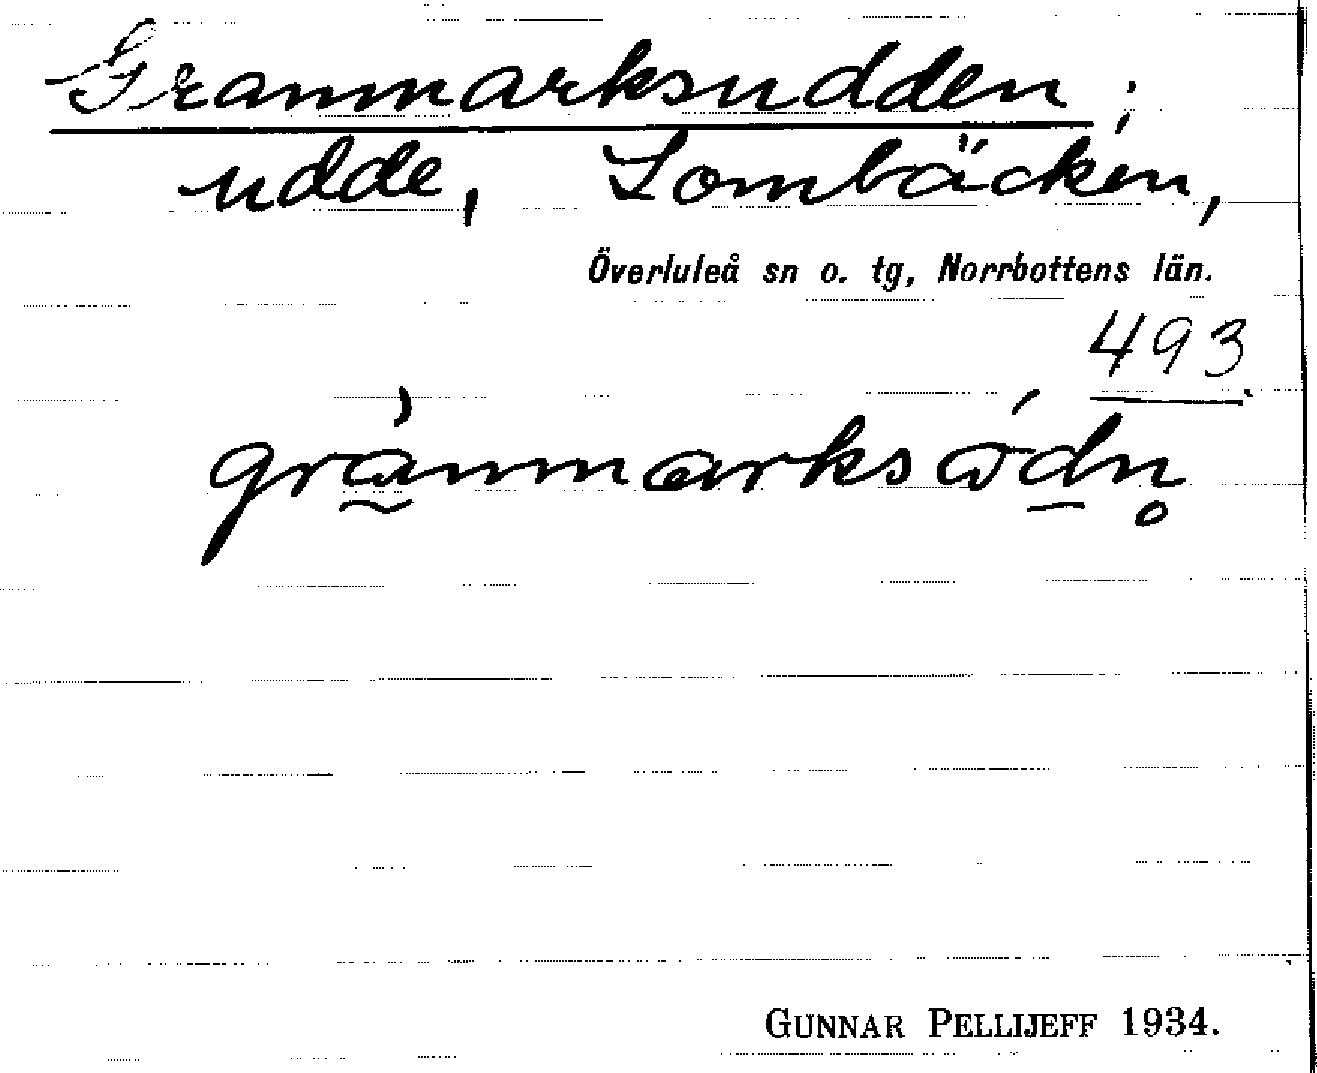 Granmarksudden;
udde, Lombäcken,
Överluleå sn o. tg, Norrbottens län.
493
GUNNAR PELLIJEFF 1934.